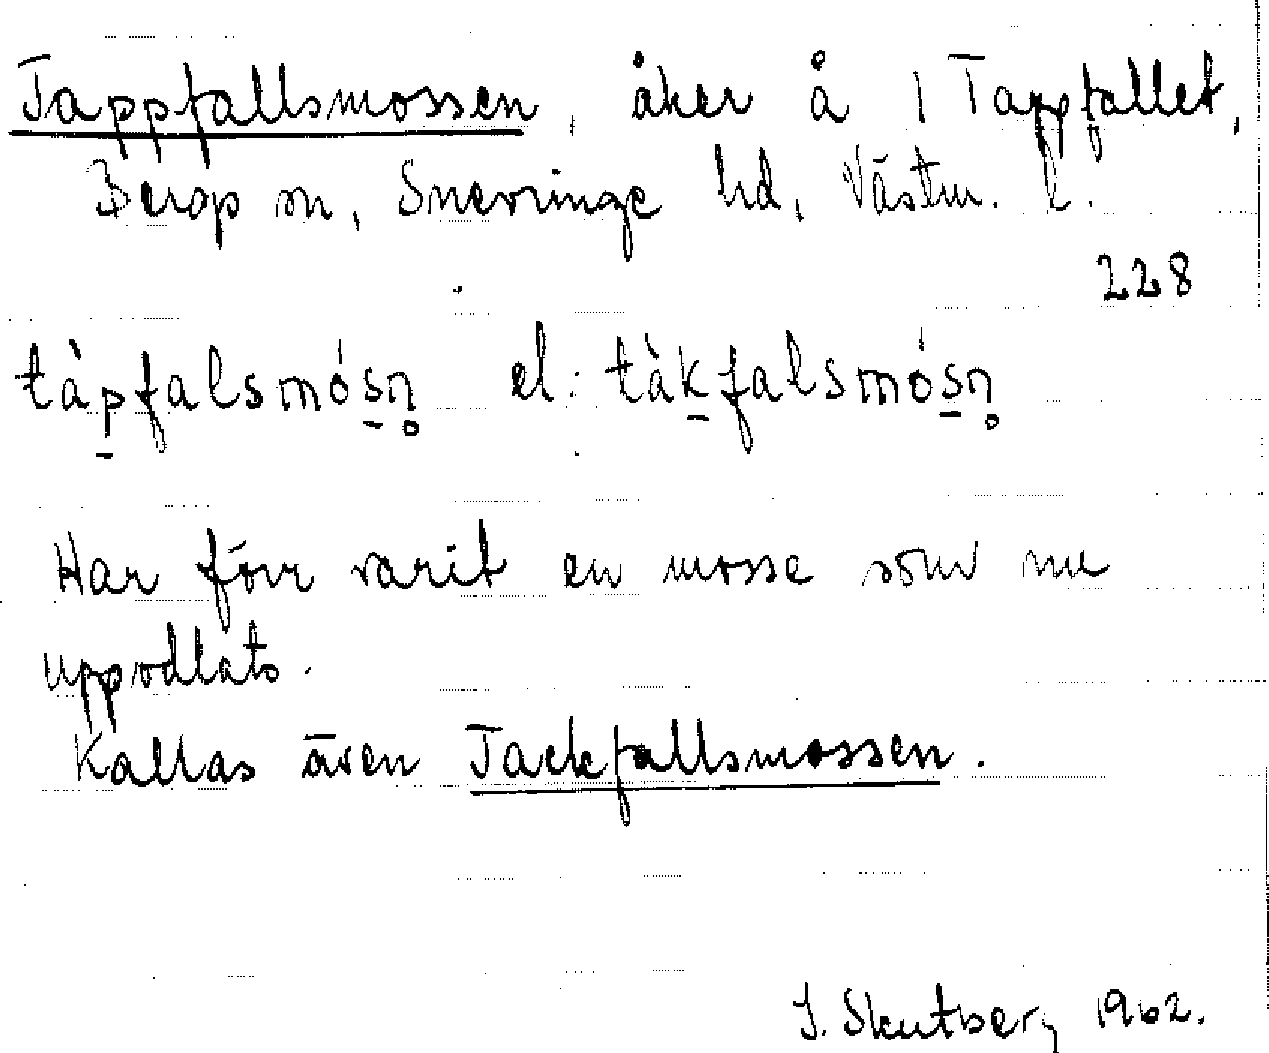 Tappfallsmossen, åker å 1 Tappfallet,
Bergs sn, Snevringe hd, Västm. l.
228
tàp̲falsmós̲n̥ el. tàk̲falsmós̲n̥
Har förr varit en mosse som nu
uppodlats.
Kallas även Tackfallsmossen.
J. Skutberg 1962.